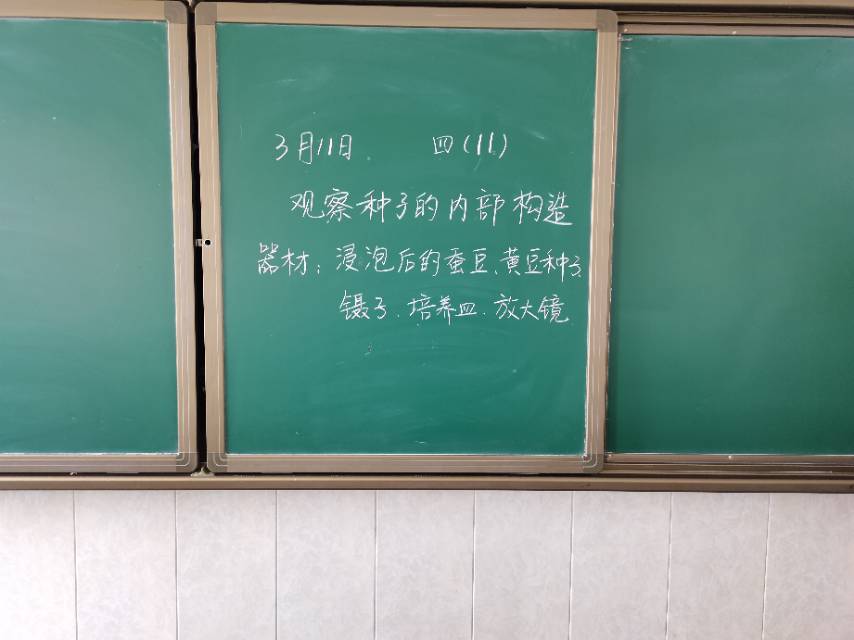 3月11日 四(11)
观察种子的内部构造
器材：浸泡后的蚕豆、黄豆种子
镊子、培养皿、放大镜